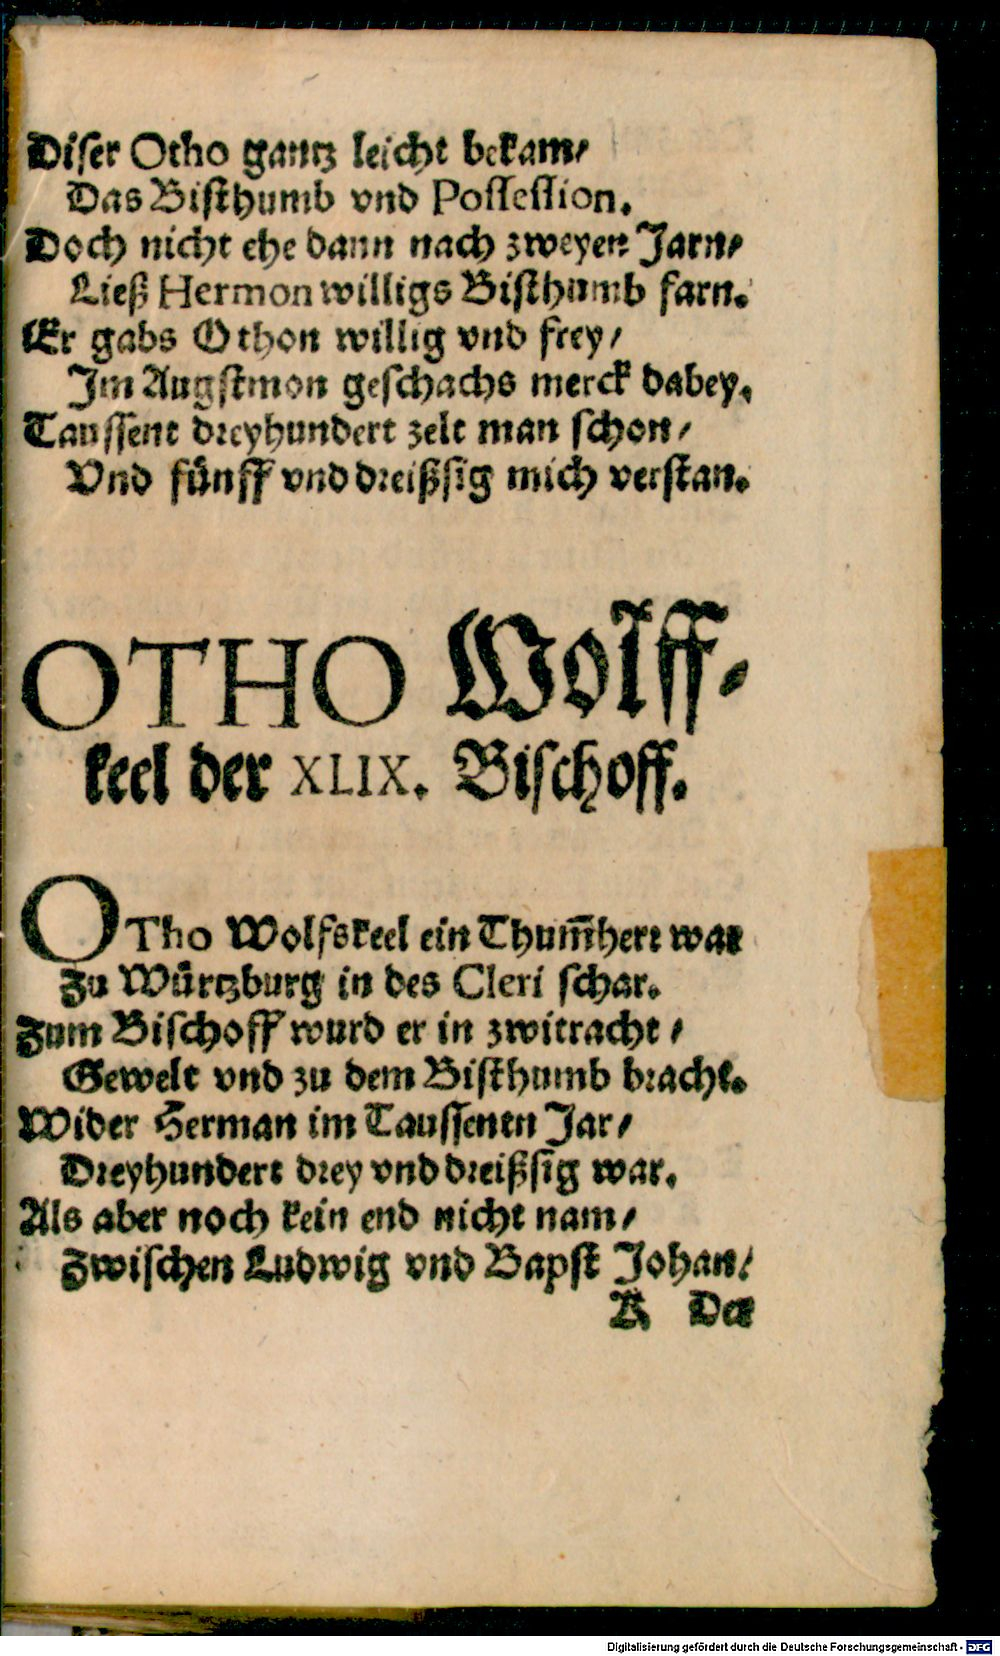 Diser Otho gantz leicht bekam/
Das Bisthumb vnd Possession.
Doch nicht ehe dann nach zweyen Jarn/
Ließ Hermon willigs Bisthumb farn.
Er gabs Othon willig vnd frey/
Im Augstmon geschachs merck dabey.
Taussent dreyhundert zelt man schon/
Vnd fünff vnd dreißsig mich verstan.
OTHO Wolff-
keel der XLIX. Bischoff.
OTho Wolfskeel ein Thum̄herr war
Zu Würtzburg in des Cleri schar.
Zum Bischoff wurd er in zwitracht/
Gewelt vnd zu dem Bisthumb bracht.
Wider Herman im Taussenten Jar/
Dreyhundert drey vnd dreißsig war.
Als aber noch kein end nicht nam/
Zwischen Ludwig vnd Bapst Johan/
K Der
Digitalisierung gefördert durch die Deutsche Forschungsgemeinschaft - DFG